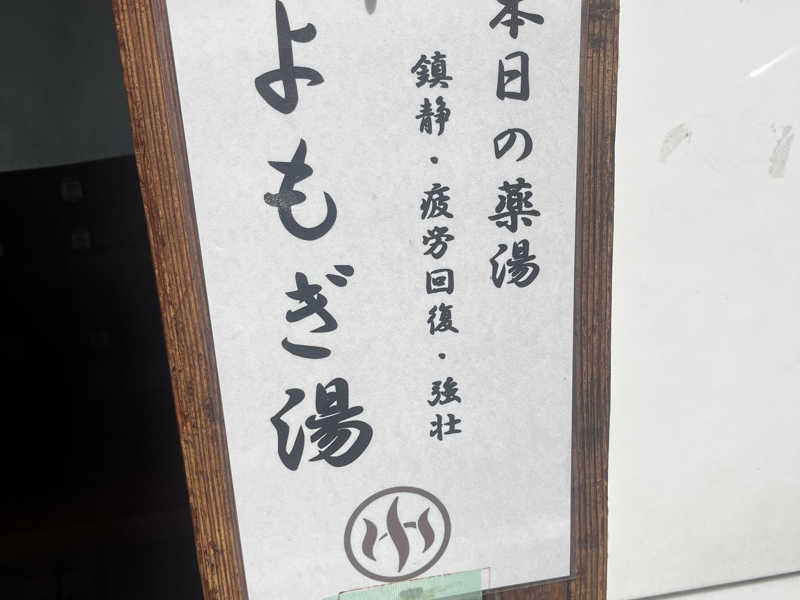 本日の薬湯
鎮静・疲労回復・強壮
よもぎ湯